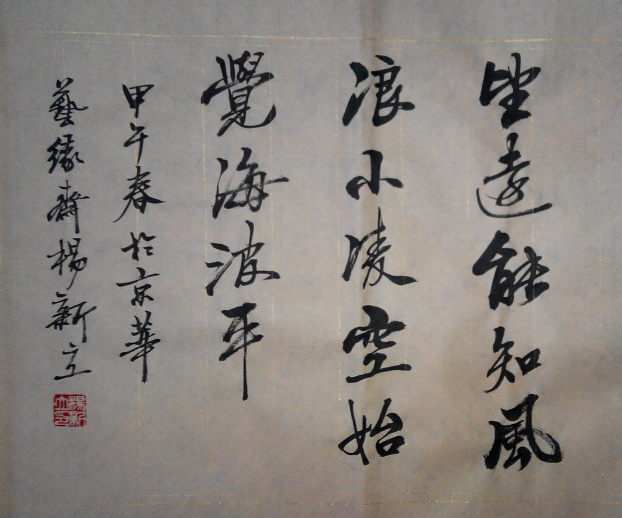 望遠能知風
浪小凌空始
覺海波平
甲午春於京華
藝緣齋楊新立
楊新立印